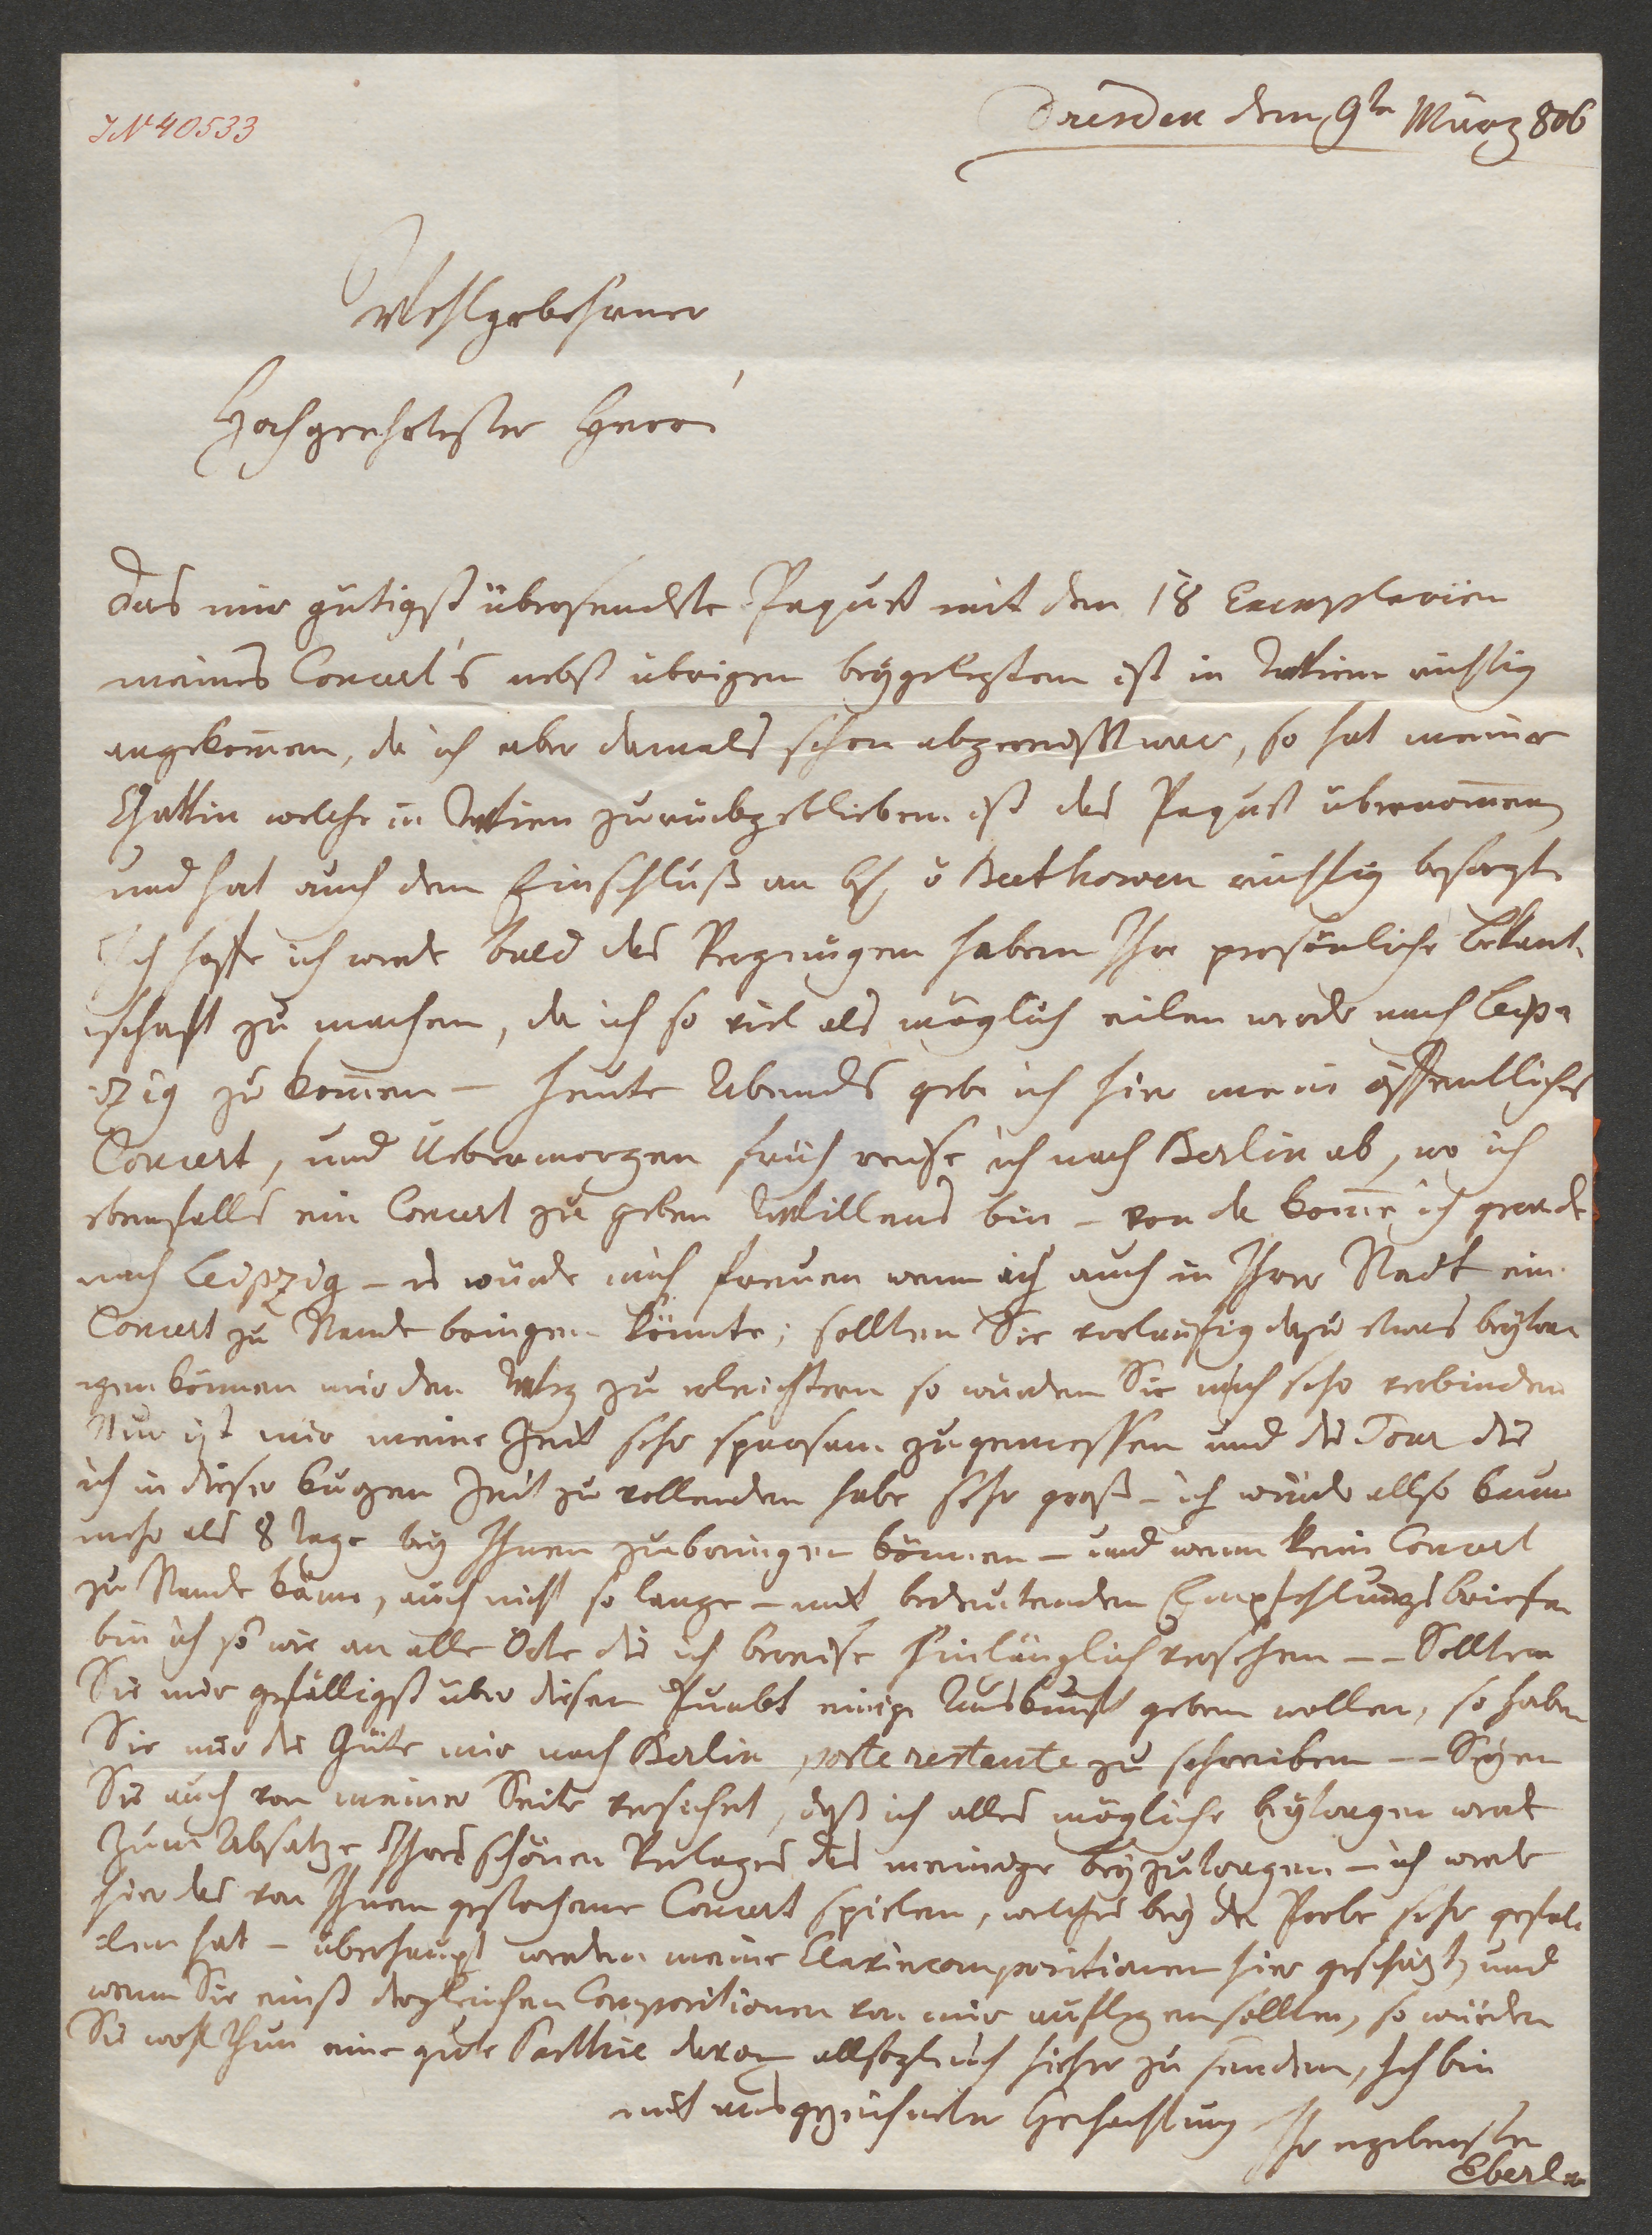 IN 40533
Dresden den 9ten März 806
Wohlgebohrner
Hochgeehrtester Herr!
Das mir gütigst übersendete Paquet mit den 18 Exemplarien
meines Concert's nebst übrigen beygelegten ist in Wien richtig
angekom̅en, da ich aber damals schon abgereist war, so hat meine
Gattin welche in Wien zurückgeblieben ist das Paquet übernom̅en
und hat auch den Einschluß an H v Beethowen richtig besorgt.
Ich hoffe ich werde bald das Vergnügen haben Ihre persönliche Bekant-
schaft zu machen, da ich so viel als möglich eilen werde nach Leip-
zig zu kom̅en – heute Abends gebe ich hier mein öffentliches
Concert, und Uebermorgen früh reise ich nach Berlin ab, wo ich
ebenfalls ein Concert zu geben Willens bin – von da kom̅e ich gerade
nach Leipzig – es würde mich freuen wenn ich auch in Ihrer Stadt ein
Concert zu Stande bringen könnte; sollten Sie vorläufig dazu etwas beytra-
gen können mir den Weg zu erleichtern so würden Sie mich sehr verbinden
Nur ist mir meine Zeit sehr sparsam zugemessen und die Tour die
ich in dieser kurzen Zeit zu vollenden habe sehr groß – ich würde allso kaum
mehr als 8 Tage bey Ihnen zubringen können – und wenn kein Concert
zu Stande käme, auch nicht so lange – mit bedeutenden Empfehlungsbriefen
bin ich so wie an alle Orte die ich bereise hinlänglich versehen – – Sollten
Sie mir gefälligst über diesen Punkt einige Auskunft geben wollen, so haben
Sie nur die Güte mir nach Berlin poste restante zu schreiben – – Seyen
Sie auch von meiner Seite versichert, daß ich alles mögliche beytragen werde
zum Absatze Ihres schönen Verlages das meinige beyzutragen – ich werde
hier das von Ihnen gestochene Concert spielen, welches bey der Probe sehr gefal-
len hat – überhaupt werden meine Claviercompositionen hier geschäzt, und
wenn Sie einst dergleichen Compositionen von mir auflegen sollten, so würden
Sie wohl thun eine gute Parthie davon allsogleich hieher zu senden, Ich bin
mit ausgezeichneter Hochachtung Ihr ergebenster
Eberl